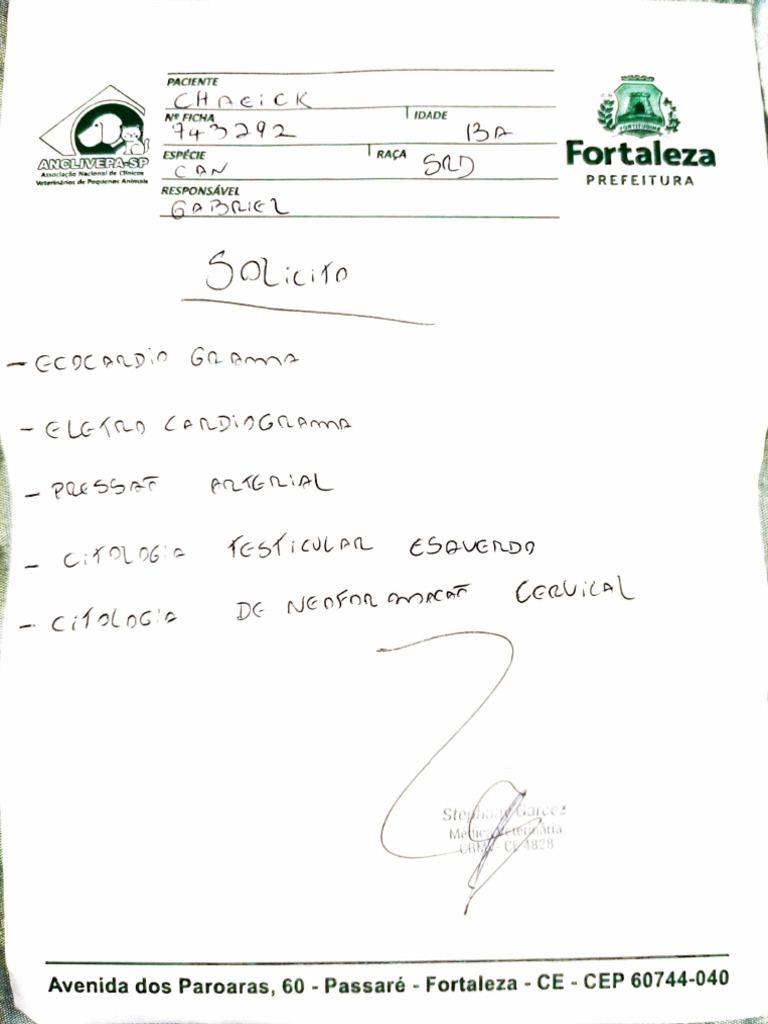 PACIENTE
CHAEICK
Nº FICHA 743292 IDADE 13A
ESPÉCIE CAN RAÇA SRD
RESPONSÁVEL
GABRIEL
ANCLIVEPA-SP
Associação Nacional de Clínicos
Veterinários de Pequenos Animais
Fortaleza
PREFEITURA
SOLICITO
- ECOCARDIO GRAMA
- ELETRO CARDIOGRAMA
- PRESSAÕ ARTERIAL
- CITOLOGIA TESTICULAR ESQUERDO
- CITOLOGIA DE NEOFORMAÇAÕ CERVICAL
Garcez
Médica Veterinária
CRMV - CE 4828
Avenida dos Paroaras, 60 - Passaré - Fortaleza - CE - CEP 60744-040